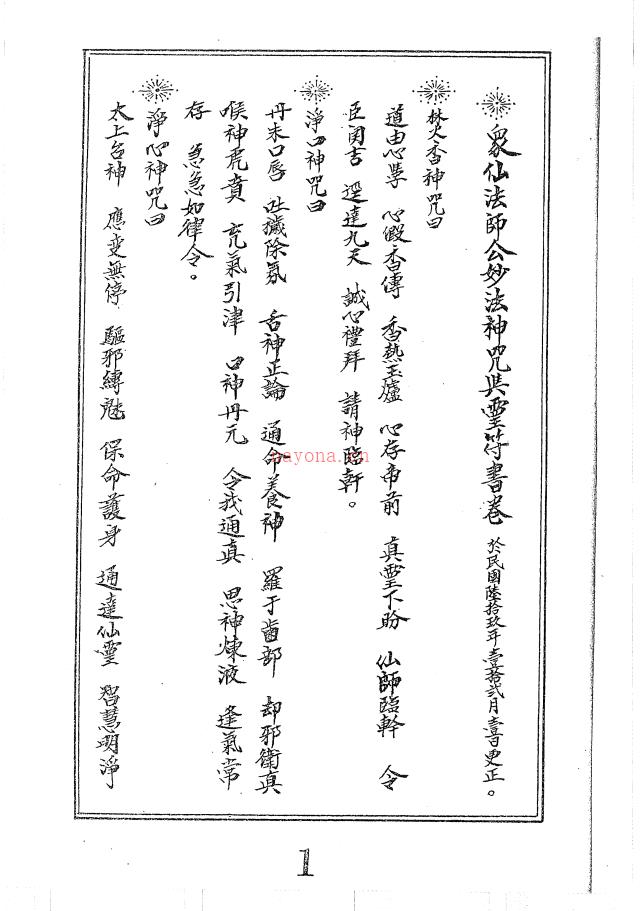 眾仙法師公妙法神咒與靈符書卷 於民國陸拾玖年壹拾貳月壹日更正。
焚香神咒曰
道由心學 心假香傳 香熱玉爐 心存帝前 真靈下盼 仙師臨幹 令
臣関告 逕達九天 誠心禮拜 請神臨軒。
淨口神咒曰
丹朱口唇 吐穢除氛 舌神正論 通命養神 羅于齒部 却邪衛真
喉神虎賁 充氣引津 口神丹元 令我通真 思神煉液 逢氣常
存 急急如律令。
淨心神咒曰
太上台神 應变無停 驅邪縛魅 保命護身 通達仙靈 智慧明淨
nayona.cn
1